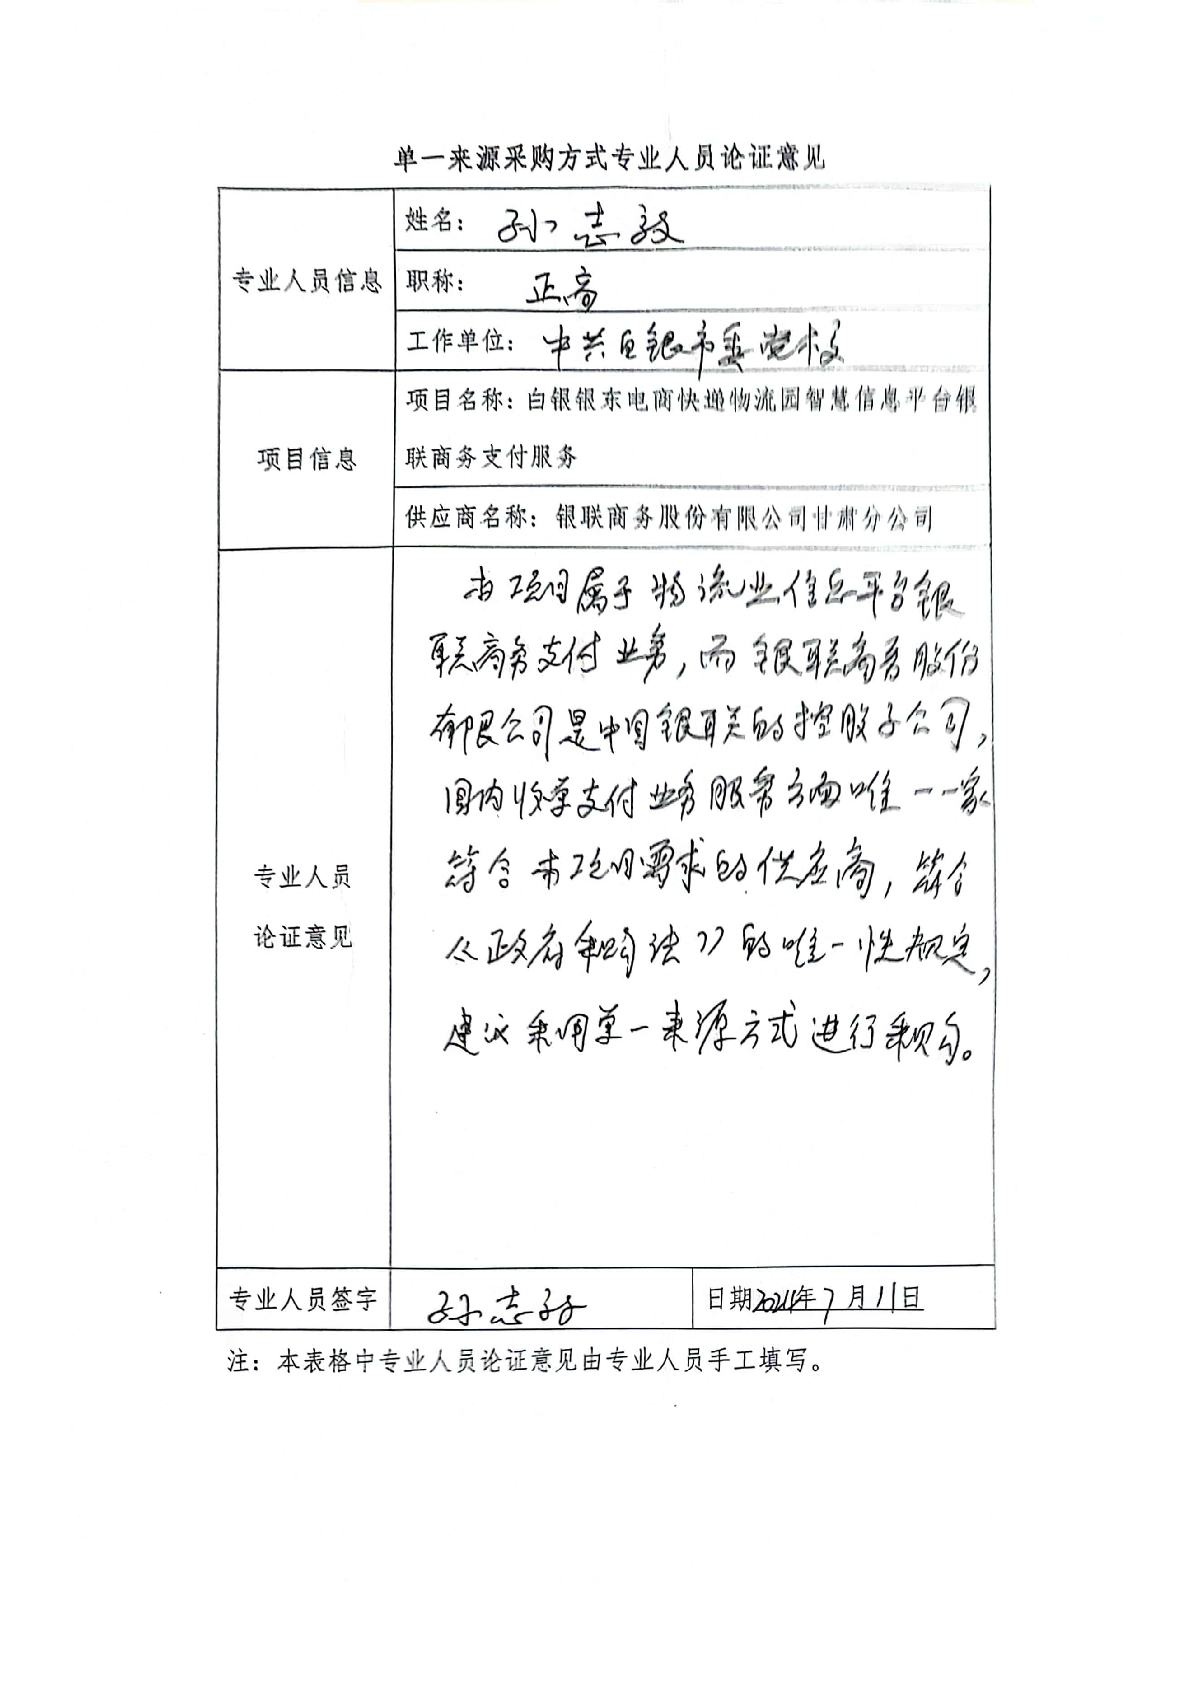 单一来源采购方式专业人员论证意见
专业人员信息
姓名：孙志毅
职称：正高
工作单位：中共白银市委党校
项目信息
项目名称：白银银东电商快递物流园智慧信息平台银
联商务支付服务
供应商名称：银联商务股份有限公司甘肃分公司
专业人员
论证意见
本项目属于物流业信息平台银
联商务支付业务，而银联商务股份
有限公司是中国银联的控股子公司，
国内收单支付业务服务方面唯一一家
符合本项目需求的供应商，符合
《政府采购法》的唯一性规定，
建议采用单一来源方式进行采购。
专业人员签字
孙志毅
日期2024年7月11日
注：本表格中专业人员论证意见由专业人员手工填写。